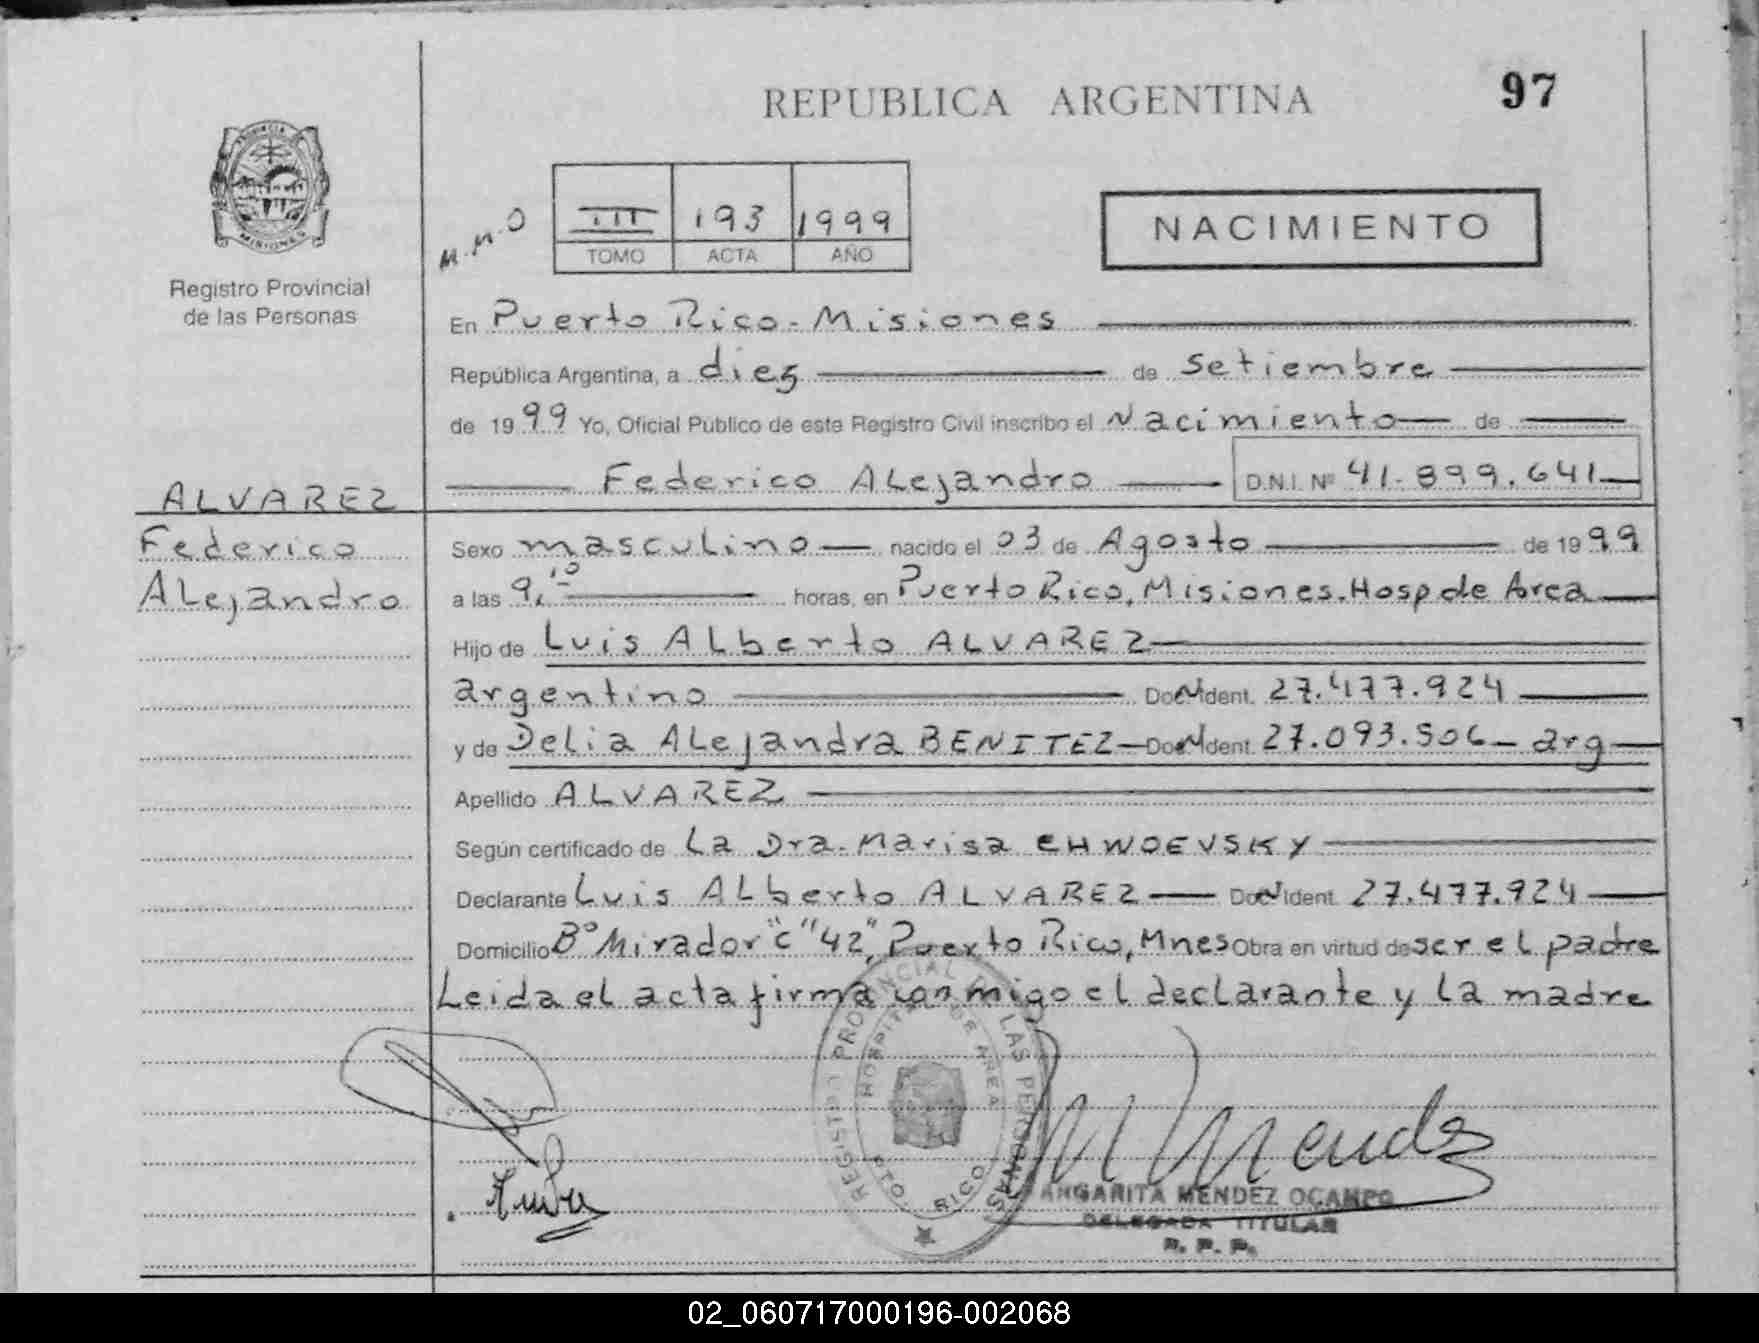 REPUBLICA ARGENTINA
97
PROVINCIA DE
MISIONES
Registro Provincial
de las Personas
M.M.O
III 193 1999
TOMO ACTA AÑO
NACIMIENTO
En Puerto Rico - Misiones
República Argentina, a diez de Setiembre
de 1999 Yo, Oficial Público de este Registro Civil inscribo el Nacimiento de
Federico Alejandro D.N.I. Nº 41.899.641
ALVAREZ
Federico
Alejandro
Sexo masculino nacido el 03 de Agosto de 1999
a las 9,10 horas, en Puerto Rico, Misiones. Hosp de Area
Hijo de Luis Alberto ALVAREZ
argentino Doc Ident. 27.477.924
y de Delia Alejandra BENITEZ Doc Ident. 27.093.506 arg
Apellido ALVAREZ
Según certificado de La Dra. Marisa CHWOEVSKY
Declarante Luis Alberto ALVAREZ Doc Ident. 27.477.924
Domicilio Bº Mirador "C" "42", Puerto Rico, Mnes Obra en virtud de ser el padre
Leida el acta firma conmigo el declarante y la madre
REGISTRO PROVINCIAL DE LAS PERSONAS
HOSPITAL DE AREA
PTO. RICO
MMendez
MARGARITA MENDEZ OCAMPO
DELEGADA TITULAR
R. P. P.
02_060717000196-002068